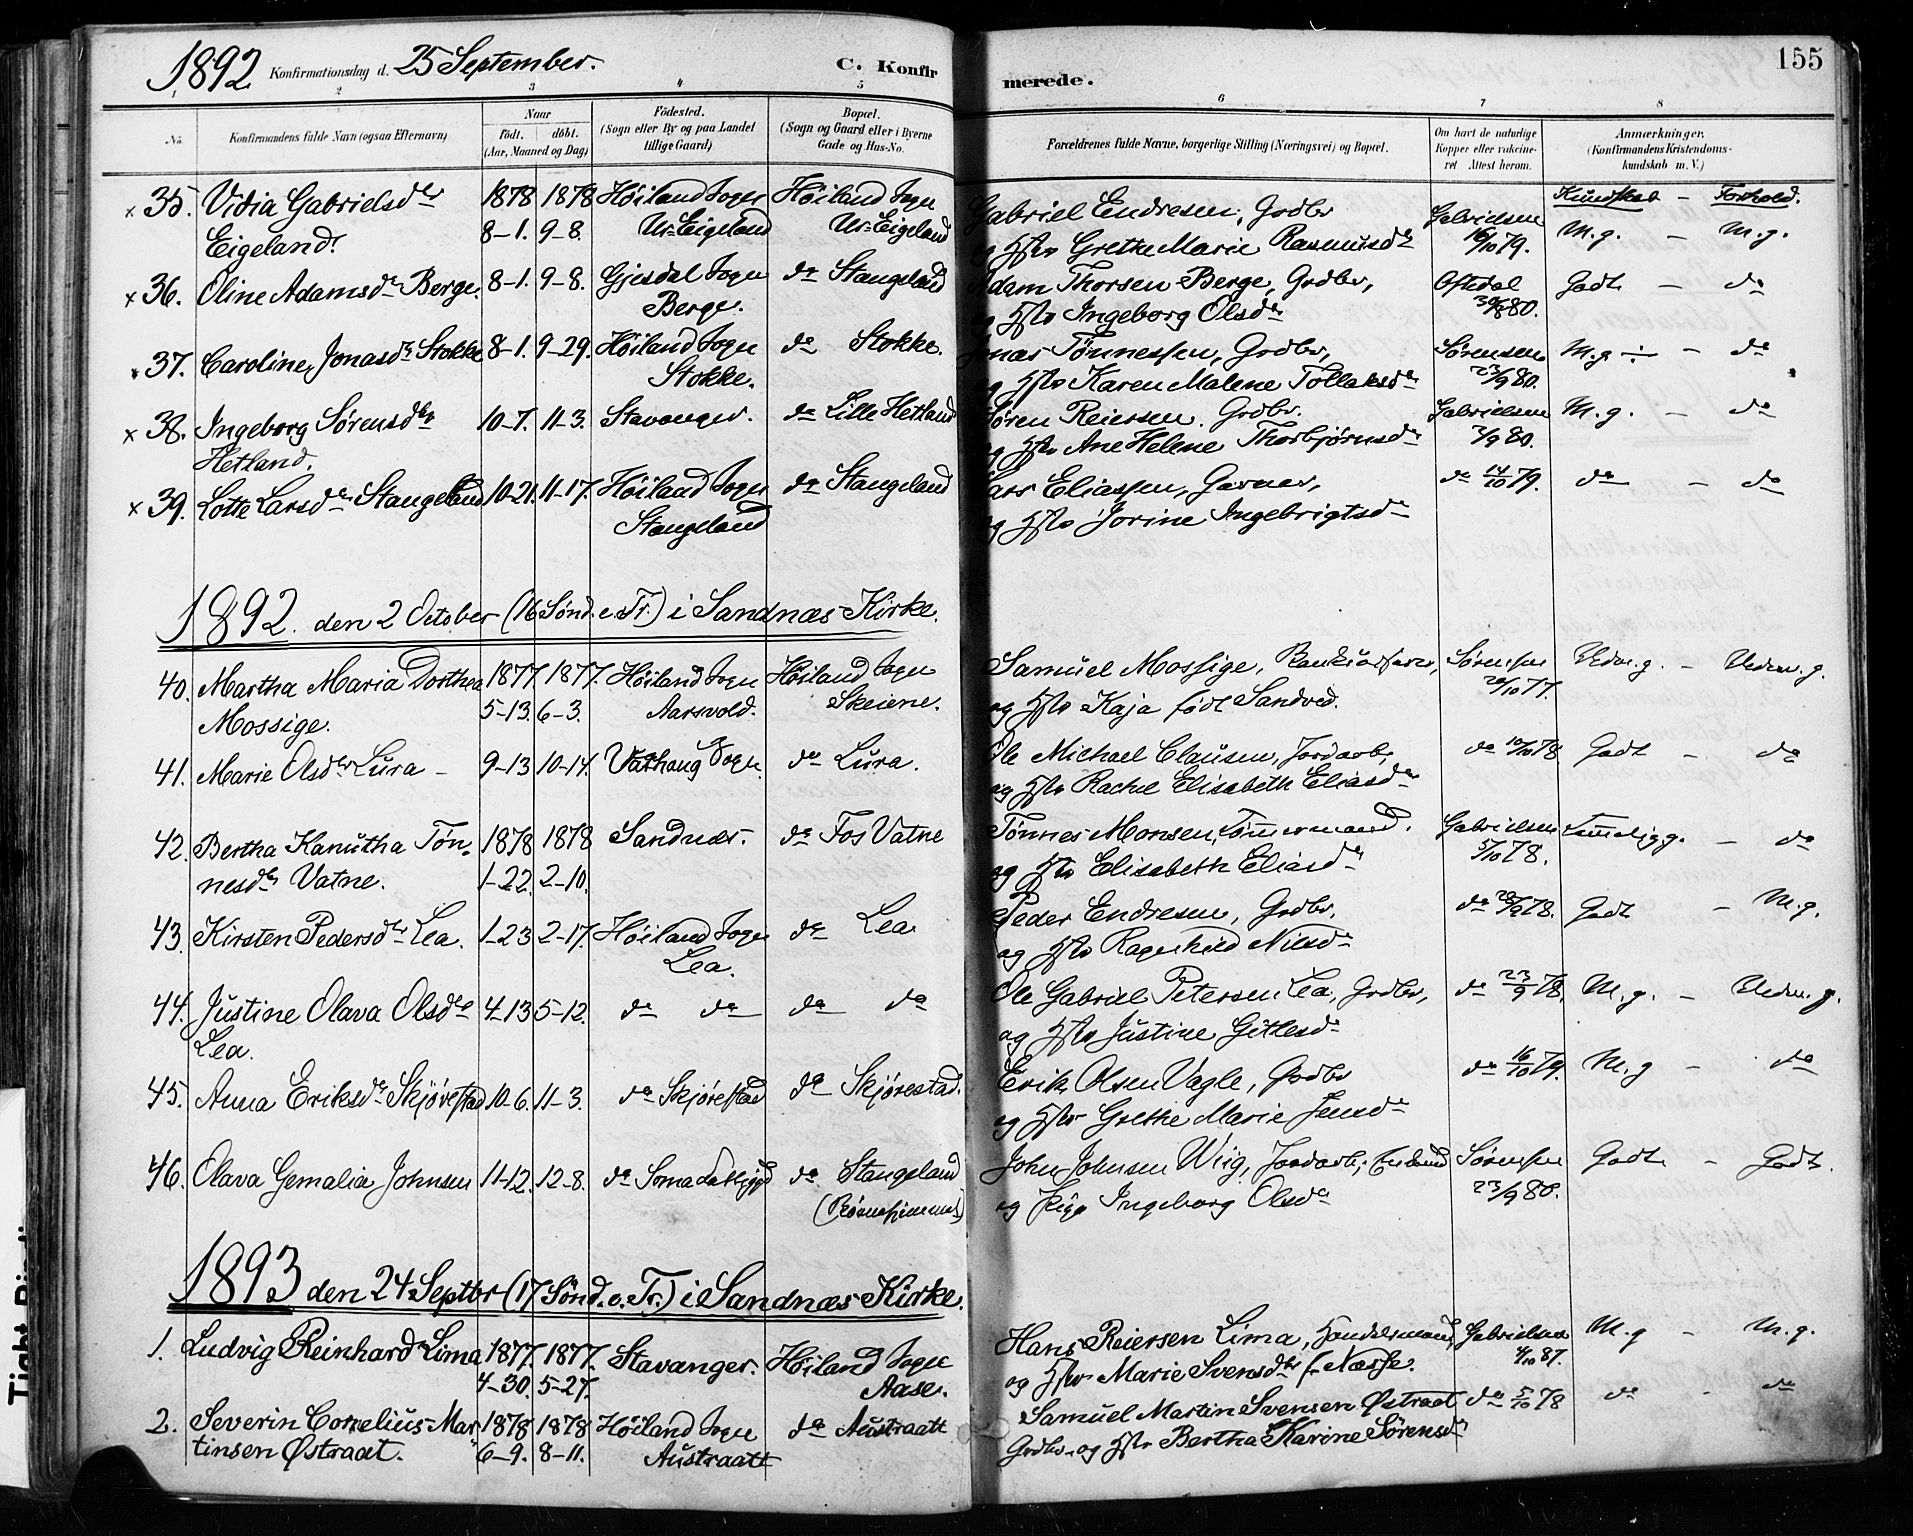 1892 Konfirmationsdag d. 25 September. C. Konfir merede. 155
1 2 3 4 5 6 7 8
No. Konfirmandens fulde Navn (ogsaa Efternavn) Naar födt. döbt. (Aar, Maaned og Dag) Födested. (Sogn eller By og paa Landet tillige Gaard) Bopæl. (Sogn og Gaard eller i Byerne Gade og Hus-No. Forældrenes fulde Navne, borgerlige Stilling (Næringsvei) og Bopæl. Om havt de naturlige Kopper eller vakcineret Attest herom. Anmærkninger. (Konfirmandens Kristendomskundskab m. V.)
Kundskab - Forhold.
x 35. Vidia Gabrielsdtr 1878 1878 Höiland Sogn Höiland Sogn Gabriel Endresen, Grdbr Gabrielsen
Eigeland. 8-1. 9-8. Us=Eigeland Us=Eigeland og Hstr Grethe Marie Rasmusdr 16/10 79. M.g. - M.g.
x 36. Oline Adamsdr Berge. 8-1. 9-8. Gjesdal Sogn do Stangeland Adam Thorsen Berge, Grdbr, Oftedal Godt - do
Berge. og Hstr Ingeborg Olsdr 80.
x 37. Caroline Jonasdr Stokke 8-1. 9-29. Höiland Sogn do Stokke. Jonas Tönnessen, Grdbr, Sørensen M.g ÷ - do
Stokke. og Hstr Karen Malene Tollaksdr 23/9 80.
x 38. Ingeborg Sørensdtr 10-7. 11-3. Stavanger. do Lille Hetland Søren Reiersen. Grdbr. Gabrielsen M.g. - do
Hetland. og Hstr Ane Helene Thorbjørnsdr 7/9 80.
x 39. Lotte Larsdr Stangeland 10-21. 11-17. Höiland Sogn do Stangeland Lars Eliassen, Garver, do 14/10 79. do - do
Stangeland og Hstr Jorine Ingebrigtsdr
1892. den 2 October (16 Sönd. e. Tr.) i Sandnæs Kirke.
40. Martha Maria Dorthea 1877. 1877. Höiland Sogn Höiland Sogn Samuel Mossige, Sørensen Udm.g. - Udm.g.
Mossige. 5-13. 6-3. Aarsvold. Skeiene. og Hstr Kaja født Sandved. 20/10 77.
41. Marie Olsdtr Lura - 9-13 10-14. Varhaug Sogn. do Lura. Ole Michael Clausen, Jordarb, do 10/10 78 Godt - do
og Hstr Rachel Elisabeth Eliasdr
42. Bertha Kanutha Tön- 1878 1878 Sandnæs. do Fos Vatne Tönnes Monsen, Tömermand. Gabrielsen Temelig g. - do
nesdtr Vatne. 1-22. 2-10. og Hstr Elisabeth Eliasdr 5/10 78.
43. Kirsten Pedersdtr Lea. 1-23 2-17. Höiland Sogn do Lea Peder Endresen, Grdbr. do 28/9 78. Godt - M.g.
Lea. og Hstr Ragnhild Nilsdr
44. Justine Olava Olsdtr 4-13 5-12. do do do do Ole Gabriel Petersen Lea, Grdbr, do 23/9 78. M.g. - Udm.g.
Lea. og Hstr Justine Gitlesdr
45. Anna Eriksdr Skjörestad 10-6. 11-3. do Skjörestad do Skjörestad. Erik Olsen Vagle, Grdbr do 16/10 79. M.g - do
og Hstr Grethe Marie Jensdr
46. Olava Gemalia Johnsen 11-12. 12-8. do Soma do Stangeland John Johnsen Wiig, Jordarb, Sørensen Godt - Godt.
og Pige Ingeborg Olsdr 23/9 80.
1893 den 24 Septbr (17 Sönd. e. Tr.) i Sandnæs Kirke.
1. Ludvig Reinhard Lima 1877. 1877. Stavanger. Höiland Sogn Hans Reiersen Lima, Handelsmand, Gabrielsen M.g - M.g.
4-30. 5-27. Aase. og Hstr Marie Svensdtr f. Næsse. 4/10 87.
2. Severin Cornelius Mar 1878 1878 Höiland Sogn do Austraatt Samuel Martin Svensen Østraat do 5/10 78 do - do
tinsen Østraat. 6-9. 8-11. Austraatt Grdbr. og Hstr Bertha Karine Sørensdr
Tight Bindi